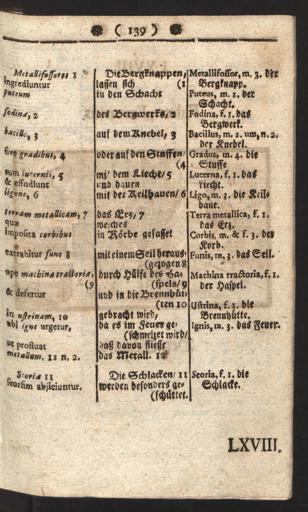 ( 139 )
Metallifossores 1
ingrediuntur
puteum
fodinæ, 2
bacillo, 3
sive gradibus, 4
cum lucernis, 5
& effodiunt
ligone, 6
terram metallicam, 7
quæ
imposita corbibus
extrahitur fune 8
ope machinæ tractoriæ,
(9
& defertur
in ustrinam, 10
ubi igne urgetur,
ut profluat
metallum. 12 n. 2.
Scoria 11
seorsim abjiciuntur.
Die Bergknappen,
lassen sich (1
in den Schacht
des Bergwercks, 2
auf dem Knebel, 3
oder auf den Stuffen,
(4
mit dem Liecht, 5
und hauen
mit der Keilhauen, 6
das Ertz, 7
welches
in Körbe gefasset
mit einem Seil heraus-
(gezogen 8
durch Hülffe des Ha-
(spels, 9
und in die Brennhüt-
(ten 10
gebracht wird,
da es im Feuer ge-
(schmeltzet wird,
daß davon fließe
das Metall. 12
Die Schlacken, 11
werden besonders ge-
(schüttet.
Metallifossor, m. 3. der
Bergknapp.
Puteus, m. 2. der
Schacht.
Fodina, f. 1. das
Bergwerk.
Bacillus, m. 2. um, n. 2.
der Knebel.
Gradus, m. 4. die
Stuffe
Lucerna, f. 1. das
Liecht.
Ligo, m. 3. die Keil-
haue.
Terra metallica, f. 1.
das Ertz.
Corbis, m. & f. 3. der
Korb.
Funis, m. 3. das Seil.
Machina tractoria, f. 1.
der Haspel.
Ustrina, f. 1. die
Brennhütte.
Ignis, m. 3. das Feuer.
Scoria, f. 1. die
Schlacke.
LXVIII.